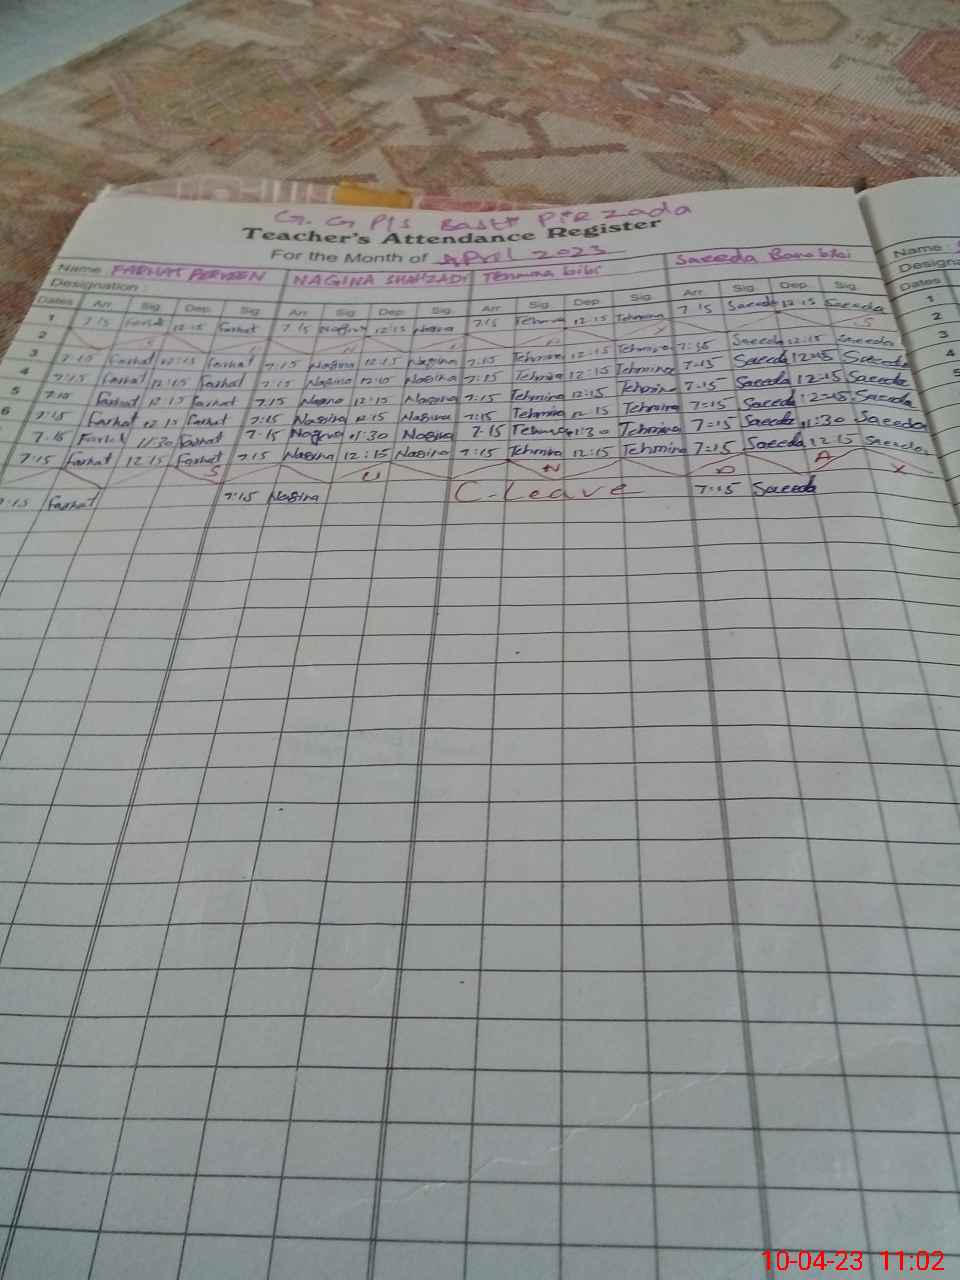 G. G P/S Basti PIRZada
Teacher's Attendance Register
For the Month of April 2023
Name FARHAT PERVEEN NAGINA SHAHZADI Tehmina bibi Saeeda Bano
Name :
Designation :
Dates Arr. Sig. Dep. Sig. Arr. Sig. Dep. Sig. Arr. Sig. Dep. Sig. Arr. Sig. Dep. Sig.
Dates
1 7:15 Farhat 12:15 Farhat 7:15 Nagina 12:15 Nagina 7:15 Tehmina 12:15 Tehmina 7:15 Saeeda 12:15 Saeeda
2 S U N D A Y
3 7:15 Farhat 12:15 Farhat 7:15 Nagina 12:15 Nagina 7:15 Tehmina 12:15 Tehmina 7:15 Saeeda 12:15 Saeeda
4 7:15 Farhat 12:15 Farhat 7:15 Nagina 12:15 Nagina 7:15 Tehmina 12:15 Tehmina 7:15 Saeeda 12:15 Saeeda
5 7:15 Farhat 12:15 Farhat 7:15 Nagina 12:15 Nagina 7:15 Tehmina 12:15 Tehmina 7:15 Saeeda 12:15 Saeeda
6 7:15 Farhat 12:15 Farhat 7:15 Nagina 12:15 Nagina 7:15 Tehmina 12:15 Tehmina 7:15 Saeeda 12:15 Saeeda
7:15 Farhat 11:30 Farhat 7:15 Nagina 11:30 Nagina 7:15 Tehmina 11:30 Tehmina 7:15 Saeeda 11:30 Saeeda
7:15 Farhat 12:15 Farhat 7:15 Nagina 12:15 Nagina 7:15 Tehmina 12:15 Tehmina 7:15 Saeeda 12:15 Saeeda
S U N D A Y
7:15 Farhat 7:15 Nagina C-Leave 7:15 Saeeda
1
2
3
4
10-04-23 11:02